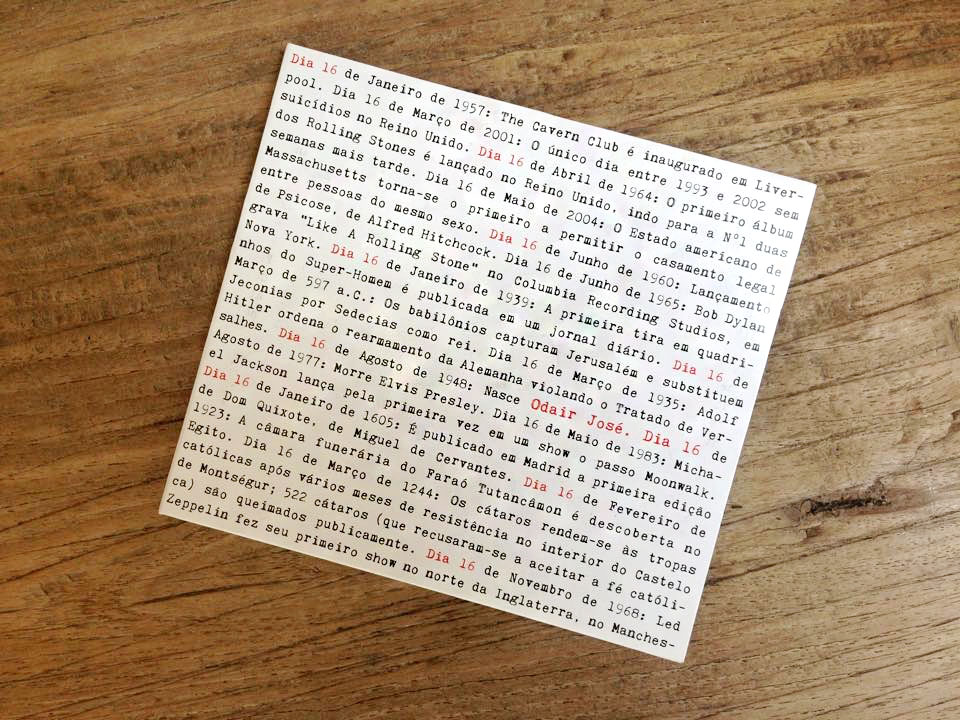 Dia 16 de Janeiro de 1957: The Cavern Club é inaugurado em Liver-
pool. Dia 16 de Março de 2001: O único dia entre 1993 e 2002 sem
suicídios no Reino Unido. Dia 16 de Abril de 1964: O primeiro álbum
dos Rolling Stones é lançado no Reino Unido, indo para a Nº1 duas
semanas mais tarde. Dia 16 de Maio de 2004: O Estado americano de
Massachusetts torna-se o primeiro a permitir o casamento legal
entre pessoas do mesmo sexo. Dia 16 de Junho de 1960: Lançamento
de Psicose, de Alfred Hitchcock. Dia 16 de Junho de 1965: Bob Dylan
grava "Like A Rolling Stone" no Columbia Recording Studios, em
Nova York. Dia 16 de Janeiro de 1939: A primeira tira em quadri-
nhos do Super-Homem é publicada em um jornal diário. Dia 16 de
Março de 597 a.C.: Os babilônios capturam Jerusalém e substituem
Jeconias por Sedecias como rei. Dia 16 de Março de 1935: Adolf
Hitler ordena o rearmamento da Alemanha violando o Tratado de Ver-
salhes. Dia 16 de Agosto de 1948: Nasce Odair José. Dia 16 de
Agosto de 1977: Morre Elvis Presley. Dia 16 de Maio de 1983: Micha-
el Jackson lança pela primeira vez em um show o passo Moonwalk.
Dia 16 de Janeiro de 1605: É publicado em Madrid a primeira edição
de Dom Quixote, de Miguel de Cervantes. Dia 16 de Fevereiro de
1923: A câmara funerária do Faraó Tutancâmon é descoberta no
Egito. Dia 16 de Março de 1244: Os cátaros rendem-se às tropas
católicas após vários meses de resistência no interior do Castelo
de Montségur; 522 cátaros (que recusaram-se a aceitar a fé católi-
ca) são queimados publicamente. Dia 16 de Novembro de 1968: Led
Zeppelin fez seu primeiro show no norte da Inglaterra, no Manches-